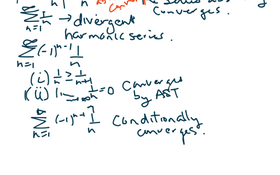 converges.
∑_{n=1}^{∞} 1/n → divergent
harmonic series.
∑_{n=1}^{∞} (-1)^{n-1} 1/n
(i) 1/n ≥ 1/(n+1) Converges
(ii) lim_{n→∞} 1/n = 0 by AST
∑_{n=1}^{∞} (-1)^{n-1} 1/n Conditionally
converges.